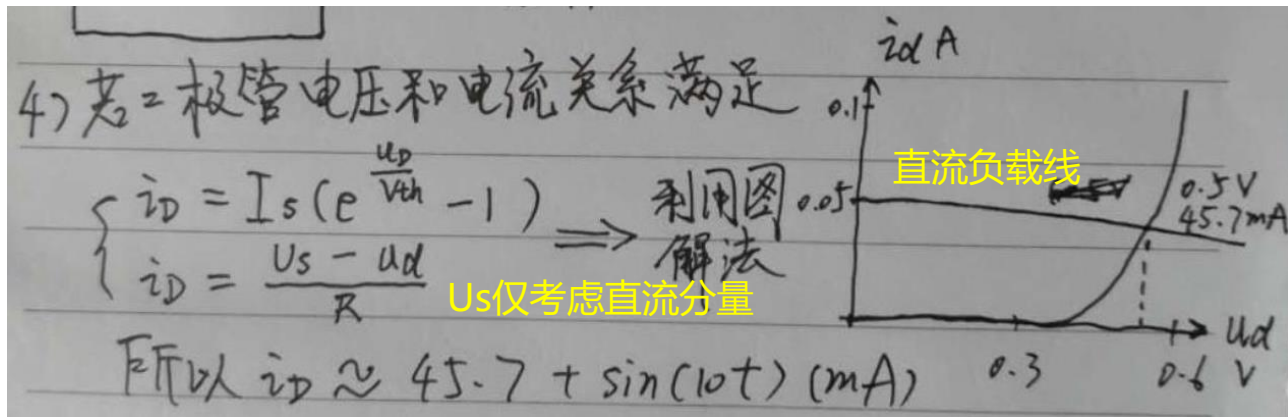 4) 若二极管电压和电流关系满足
i_D = I_s(e^{u_D/V_th} - 1)
i_D = (U_s - u_d)/R
⟹ 利用图
解法
Us仅考虑直流分量
所以 i_D ≈ 45.7 + sin(10t) (mA)
i_d A
0.1
直流负载线
0.05
0.5V
45.7mA
0.3
0.6
u_d
V